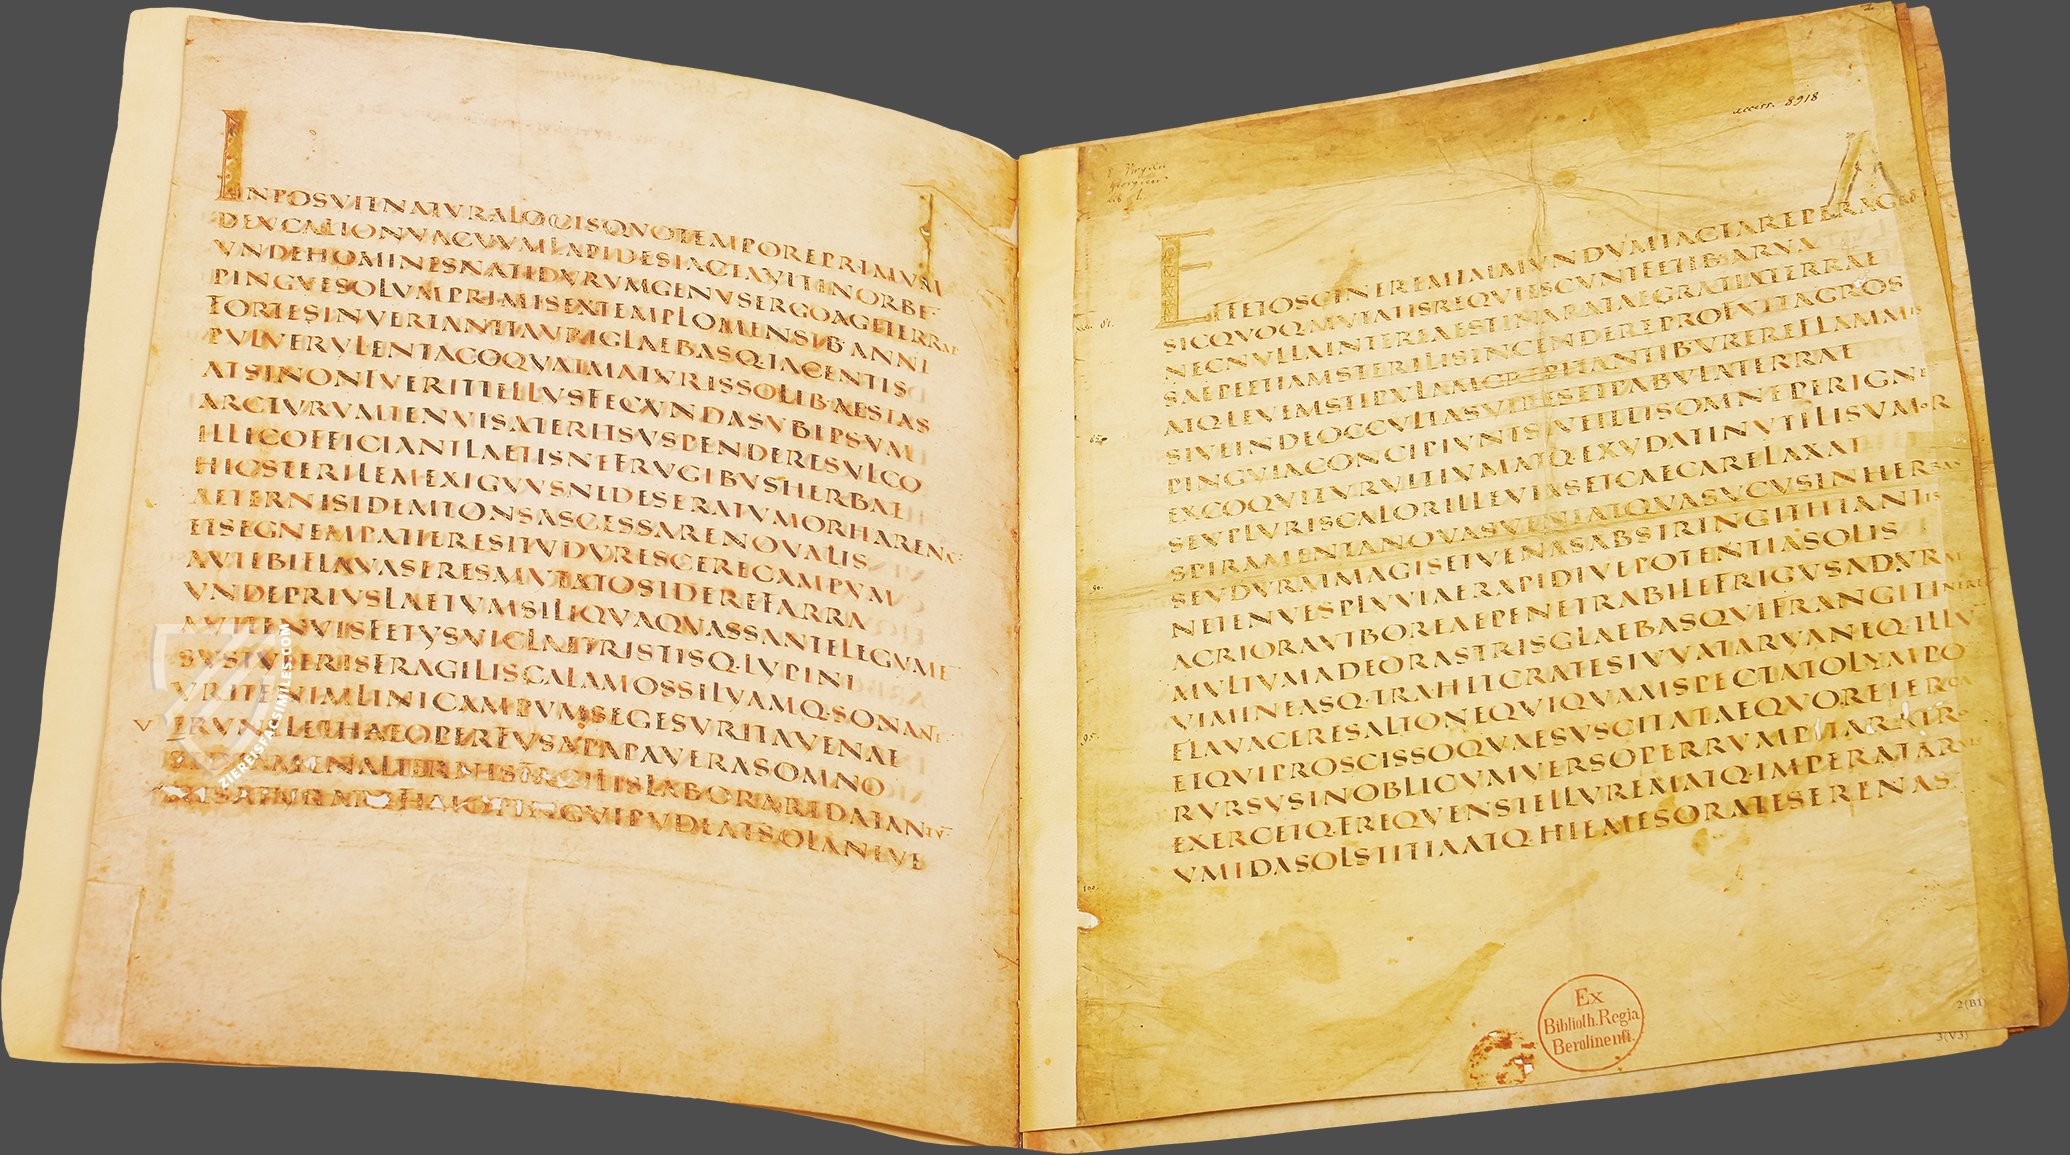 INPOSVITNATVRALOCISQVOTEMPOREPRIMVM
DEVCALIONVACVVMLAPIDESIACTAVITINORBE
VNDEHOMINESNATIDVRVMGENVSERGOAGETERRAE
PINGVESOLVMPRIMISEXTEMPLOMENSIB·ANNI
FORTESINVERTANTTAVRIGLAEBASQ·IACENTIS
PVLVERVLENTACOQVATMATVRISSOLIB·AESTAS
ATSINONFVERITTELLVSFECVNDASVBIPSVM
ARCTVRVMTENVISATERITSVSPENDERESVLCO
ILLICOFFICIANTLAETISNEFRVGIBVSHERBAE
HICSTERILEMEXIGVVSNEDESERATVMORHARENA
AETERNISIDEMTONSASCESSARENOVALIS
ETSEGNEMPATIERESITVDVRESCERECAMPVM
AVTIBIFLAVASERESMVTATOSIDEREFARRA
VNDEPRIVSLAETVMSILIQVAQVASSANTELEGVME
AVTTENVISFETVSVICIAETRISTISQ·LVPINI
SVSTVLERISFRAGILISCALAMOSSILVAMQ·SONANTE
VRITENIMLINICAMPVMSEGESVRITAVENAE
V RVNTLETHAEOPERFVSAPAPAVERASOMNO
SEDTAMENALTERNISFACILISLABORARIDATANTV
NESATVRAREFIMOPINGVIPVDEATSOLANEVE
ZIEREISFACSIMILES.COM
access. 8918
P. Virgilii
Georgicon
lib I.
EFFETOSCINEREMIMMVNDVMIACTAREPERAGROS
SICQVOQ·MVTATISREQVIESCVNTFETIB·ARVA
NECNVLLAINTEREAESTINARATAEGRATIATERRAE
SAEPEETIAMSTERILISINCENDEREPROFVITAGROS
ATQ·LEVEMSTIPVLAMCREPITANTIB·VREREFLAMMIS
SIVEINDEOCCVLTASVIRESETPABVLATERRAE
PINGVIACONCIPIVNTSIVEILLISOMNEPERIGNEM
EXCOQVITVRVITIVMATQ·EXVDATINVTILISVMOR
SEVPLVRISCALORILLEVIASETCAECARELAXAT
SPIRAMENTANOVASVENIATQVASVCVSINHERBAS
SEVDVRATMAGISETVENASABSTRINGITHIANTIS
NETENVESPLVVIAERAPIDIVEPOTENTIASOLIS
ACRIORAVTBOREAEPENETRABILEFRIGVSADVRAT
MVLTVMADEORASTRISGLAEBASQVIFRANGITINERTIS
VIMINEASQ·TRAHITCRATESIVVATARVANEQ·ILLVM
FLAVACERESALTONEQVIQVAMSPECTATOLYMPO
ETQVIPROSCISSOQVAESVSCITATAEQVORETERGA
RVRSVSINOBLICVMVERSOPERRVMPITARATRO
EXERCETQ·FREQVENSTELLVREMATQ·IMPERATARVIS
VMIDASOLSTITIAATQ·HIEMESORATESERENAS
95.
100.
Ex
Biblioth. Regia
Berolinensi.
3(V3)